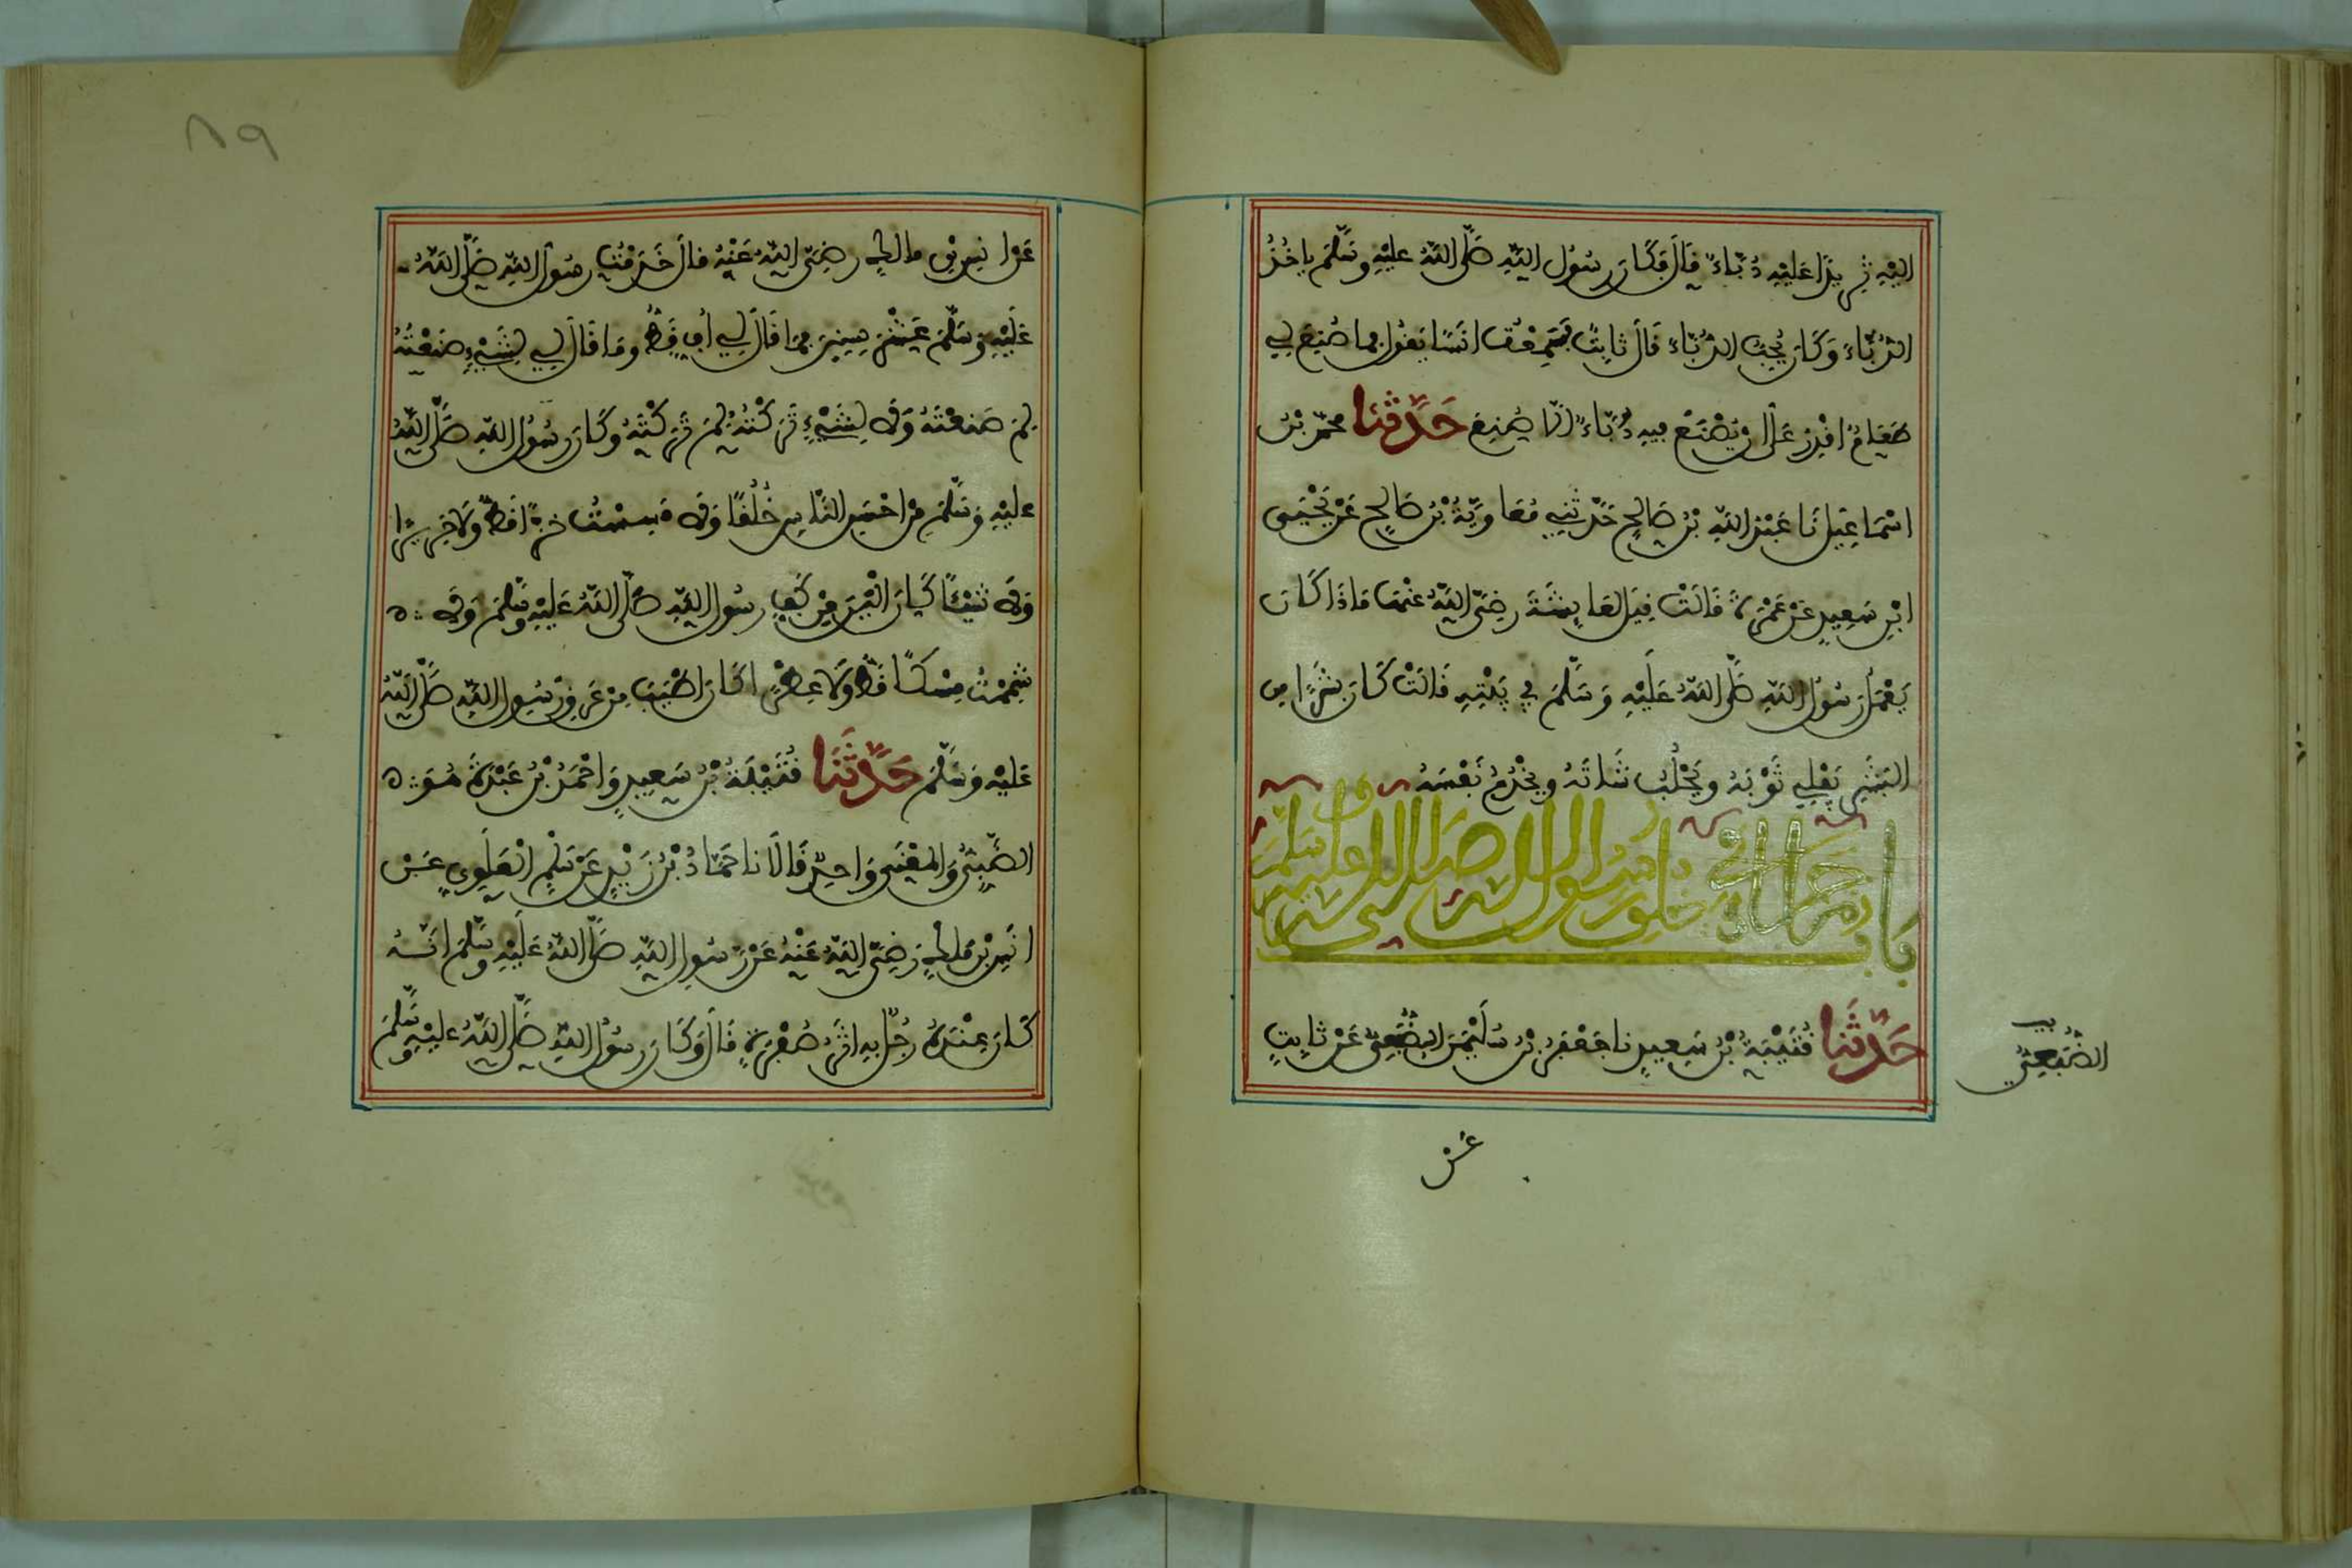 اليه ثريدا عليه دُبّاء قال فكان رسول الله صلى الله عليه وسلم ياخذ
الدُّبّاء وكان يحب الدباء قال ثابت فسمعت انسا يقول بما صنع لي
طعام اقدر على ان يصنع فيه دُبّاء الا صُنِع حدثنا محمد بن
اسماعيل نا عبد الله بن صالح حدثني معاوية بن صالح عن يحيى
ابن سعيد عن عمرة قالت قيل لعايشة رضي الله عنها ماذا كان
يعمل رسول الله صلى الله عليه وسلم في بيته قالت كان بشرا من
البشر يفلي ثوبه ويحلب شاته ويخدم نفسه
باب ما جاء في خلق رسول الله صلى الله عليه وسلم
حدثنا قتيبة بن سعيد نا جعفر بن سليمن الضبعي عن ثابت
الضُّبَعِيّ
عن
٨٩
عن انس بن مالك رضي الله عنه قال خدمت رسول الله صلى الله
عليه وسلم عشر سنين فما قال لي أف قط وما قال لي لشيء صنعته
لم صنعته ولا لشيء تركته لم تركته وكان رسول الله صلى الله
عليه وسلم من احسن الناس خُلُقًا ولا مسست خزا قط ولا حريرا
ولا شيئا كان الين من كف رسول الله صلى الله عليه وسلم ولا
شممت مسكا قط ولا عطرا كان اطيب من عرق رسول الله صلى الله
عليه وسلم حدثنا قتيبة بن سعيد واحمد بن عبدة هو
الضبي والمعنى واحد قالا نا حماد بن زيد عن سلم العلوي عن
انس بن ملك رضي الله عنه عن رسول الله صلى الله عليه وسلم انه
كان عنده رجل به اثر صفرة قال وكان رسول الله صلى الله عليه وسلم